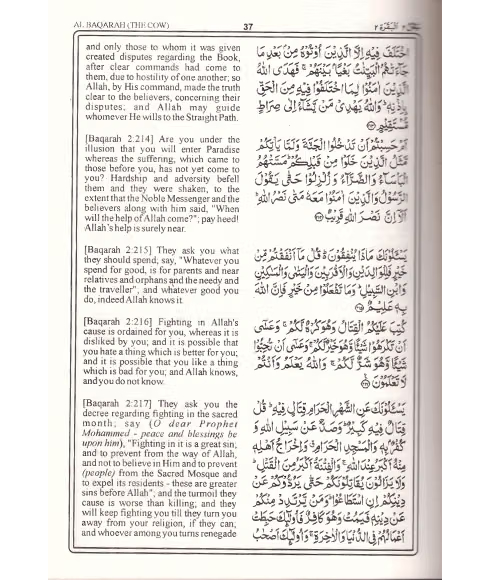 AL BAQARAH (THE COW)
37
البقرة ٢
and only those to whom it was given
created disputes regarding the Book,
after clear commands had come to
them, due to hostility of one another; so
Allah, by His Command, made the truth
clear to the believers, concerning their
disputes; and Allah may guide
whomever He wills to the Straight Path.
[Baqarah 2:214] Are you under the
illusion that you will enter Paradise
whereas the suffering, which came to
those before you, has not yet come to
you? Hardship and adversity befell
them and they were shaken, to the
extent that the Noble Messenger and the
believers along with him said, "When
will the help of Allah come?"; pay heed!
Allah's help is surely near.
[Baqarah 2:215] They ask you what
they should spend; say, "Whatever you
spend for good, is for parents and near
relatives and orphans and the needy and
the traveller", and whatever good you
do, indeed Allah knows it.
[Baqarah 2:216] Fighting in Allah's
cause is ordained for you, whereas it is
disliked by you; and it is possible that
you hate a thing which is better for you;
and it is possible that you like a thing
which is bad for you; and Allah knows,
and you do not know.
[Baqarah 2:217] They ask you the
decree regarding fighting in the sacred
month; say (O dear Prophet
Mohammed - peace and blessings be
upon him), "Fighting in it is a great sin;
and to prevent from the way of Allah,
and not to believe in Him and to prevent
(people) from the Sacred Mosque and
to expel its residents - these are greater
sins before Allah"; and the turmoil they
cause is worse than killing; and they
will keep fighting you till they turn you
away from your religion, if they can;
and whoever among you turns renegade
اخْتَلَفَ فِيْهِ اِلَّا الَّذِيْنَ اُوْتُوْهُ مِنْۢ بَعْدِ مَا
جَآءَتْهُمُ الْبَيِّنٰتُ بَغْيًۢا بَيْنَهُمْ ۚ فَهَدَى اللّٰهُ
الَّذِيْنَ اٰمَنُوْا لِمَا اخْتَلَفُوْا فِيْهِ مِنَ الْحَقِّ
بِاِذْنِهٖ ؕ وَاللّٰهُ يَهْدِيْ مَنْ يَّشَآءُ اِلٰى صِرَاطٍ
مُّسْتَقِيْمٍ
اَمْ حَسِبْتُمْ اَنْ تَدْخُلُوا الْجَنَّةَ وَلَمَّا يَاْتِكُمْ
مَّثَلُ الَّذِيْنَ خَلَوْا مِنْ قَبْلِكُمْ ؕ مَسَّتْهُمُ
الْبَاْسَآءُ وَالضَّرَّآءُ وَزُلْزِلُوْا حَتّٰى يَقُوْلَ
الرَّسُوْلُ وَالَّذِيْنَ اٰمَنُوْا مَعَهٗ مَتٰى نَصْرُ اللّٰهِ ؕ
اَلَآ اِنَّ نَصْرَ اللّٰهِ قَرِيْبٌ
يَسْـَٔلُوْنَكَ مَاذَا يُنْفِقُوْنَ ؕ قُلْ مَآ اَنْفَقْتُمْ مِّنْ
خَيْرٍ فَلِلْوَالِدَيْنِ وَالْاَقْرَبِيْنَ وَالْيَتٰمٰى وَالْمَسٰكِيْنِ
وَابْنِ السَّبِيْلِ ؕ وَمَا تَفْعَلُوْا مِنْ خَيْرٍ فَاِنَّ اللّٰهَ
بِهٖ عَلِيْمٌ
كُتِبَ عَلَيْكُمُ الْقِتَالُ وَهُوَ كُرْهٌ لَّكُمْ ۚ وَعَسٰٓى
اَنْ تَكْرَهُوْا شَيْـًٔا وَّهُوَ خَيْرٌ لَّكُمْ ۚ وَعَسٰٓى اَنْ تُحِبُّوْا
شَيْـًٔا وَّهُوَ شَرٌّ لَّكُمْ ؕ وَاللّٰهُ يَعْلَمُ وَاَنْتُمْ
لَا تَعْلَمُوْنَ
يَسْـَٔلُوْنَكَ عَنِ الشَّهْرِ الْحَرَامِ قِتَالٍ فِيْهِ ؕ قُلْ
قِتَالٌ فِيْهِ كَبِيْرٌ ؕ وَصَدٌّ عَنْ سَبِيْلِ اللّٰهِ وَ
كُفْرٌۢ بِهٖ وَالْمَسْجِدِ الْحَرَامِ ۗ وَاِخْرَاجُ اَهْلِهٖ
مِنْهُ اَكْبَرُ عِنْدَ اللّٰهِ ۚ وَالْفِتْنَةُ اَكْبَرُ مِنَ الْقَتْلِ ؕ
وَلَا يَزَالُوْنَ يُقَاتِلُوْنَكُمْ حَتّٰى يَرُدُّوْكُمْ عَنْ
دِيْنِكُمْ اِنِ اسْتَطَاعُوْا ؕ وَمَنْ يَّرْتَدِدْ مِنْكُمْ
عَنْ دِيْنِهٖ فَيَمُتْ وَهُوَ كَافِرٌ فَاُولٰٓئِكَ حَبِطَتْ
اَعْمَالُهُمْ فِي الدُّنْيَا وَالْاٰخِرَةِ ۚ وَاُولٰٓئِكَ اَصْحٰبُ